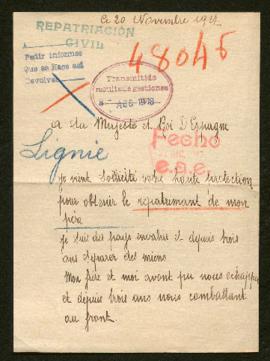 Le 20 Novembre 191
REPATRIACIÓN
CIVIL
48045
Pedir informes
Que se Hace así
Devolver
Transmitido
resultado gestiones
AGO 1918
A sa Majesté le Roi D'Espagne
Fecho
e.a.e.
Lignie
je vient solicité votre haute protection
pour obtenir le repatriement de mon
père
je suis des pays envahie et depuis trois
ans séparer des miens
Mon frère et moi avont pu nous échapper
et depuis trois ans nous combattant
au front.